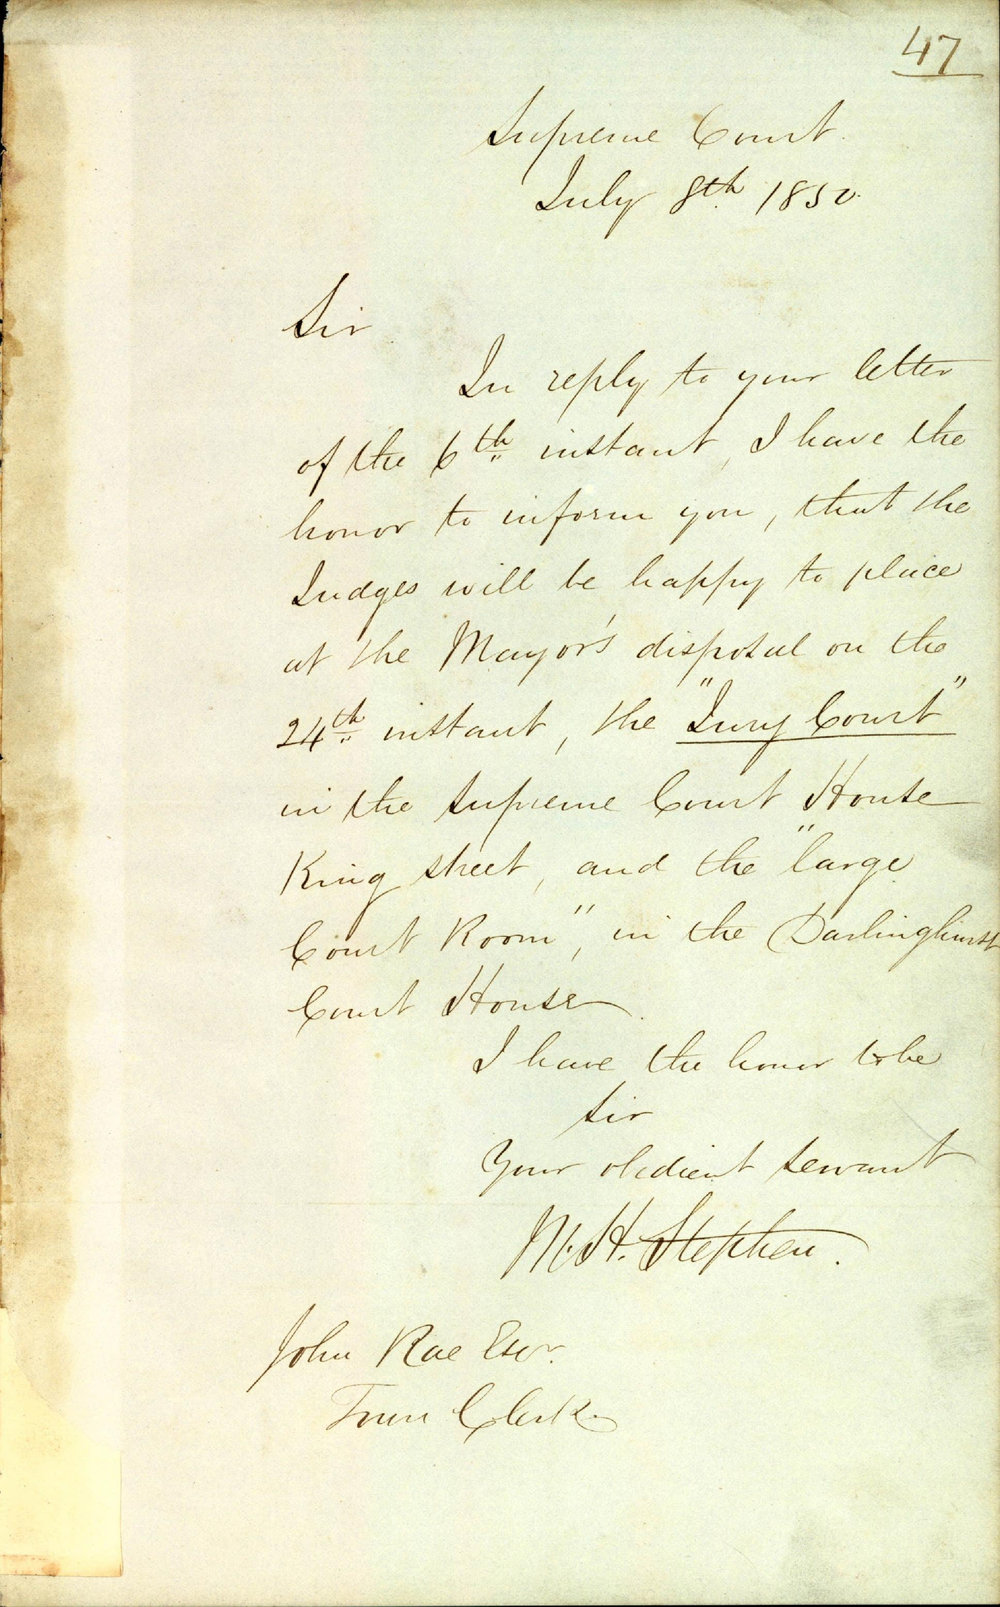 47
Supreme Court
July 8th 1850
Sir
In reply to your letter
of the 6th instant, I have the
honor to inform you, that the
Judges will be happy to place
at the Mayor's disposal on the
24th instant, the "Jury Court"
in the Supreme Court House
King street, and the "large
Court Room", in the Darlinghurst
Court House.
I have the honor to be
Sir
Your obedient servant
M. H. Stephen.
John Rae Esqr.
Town Clerk